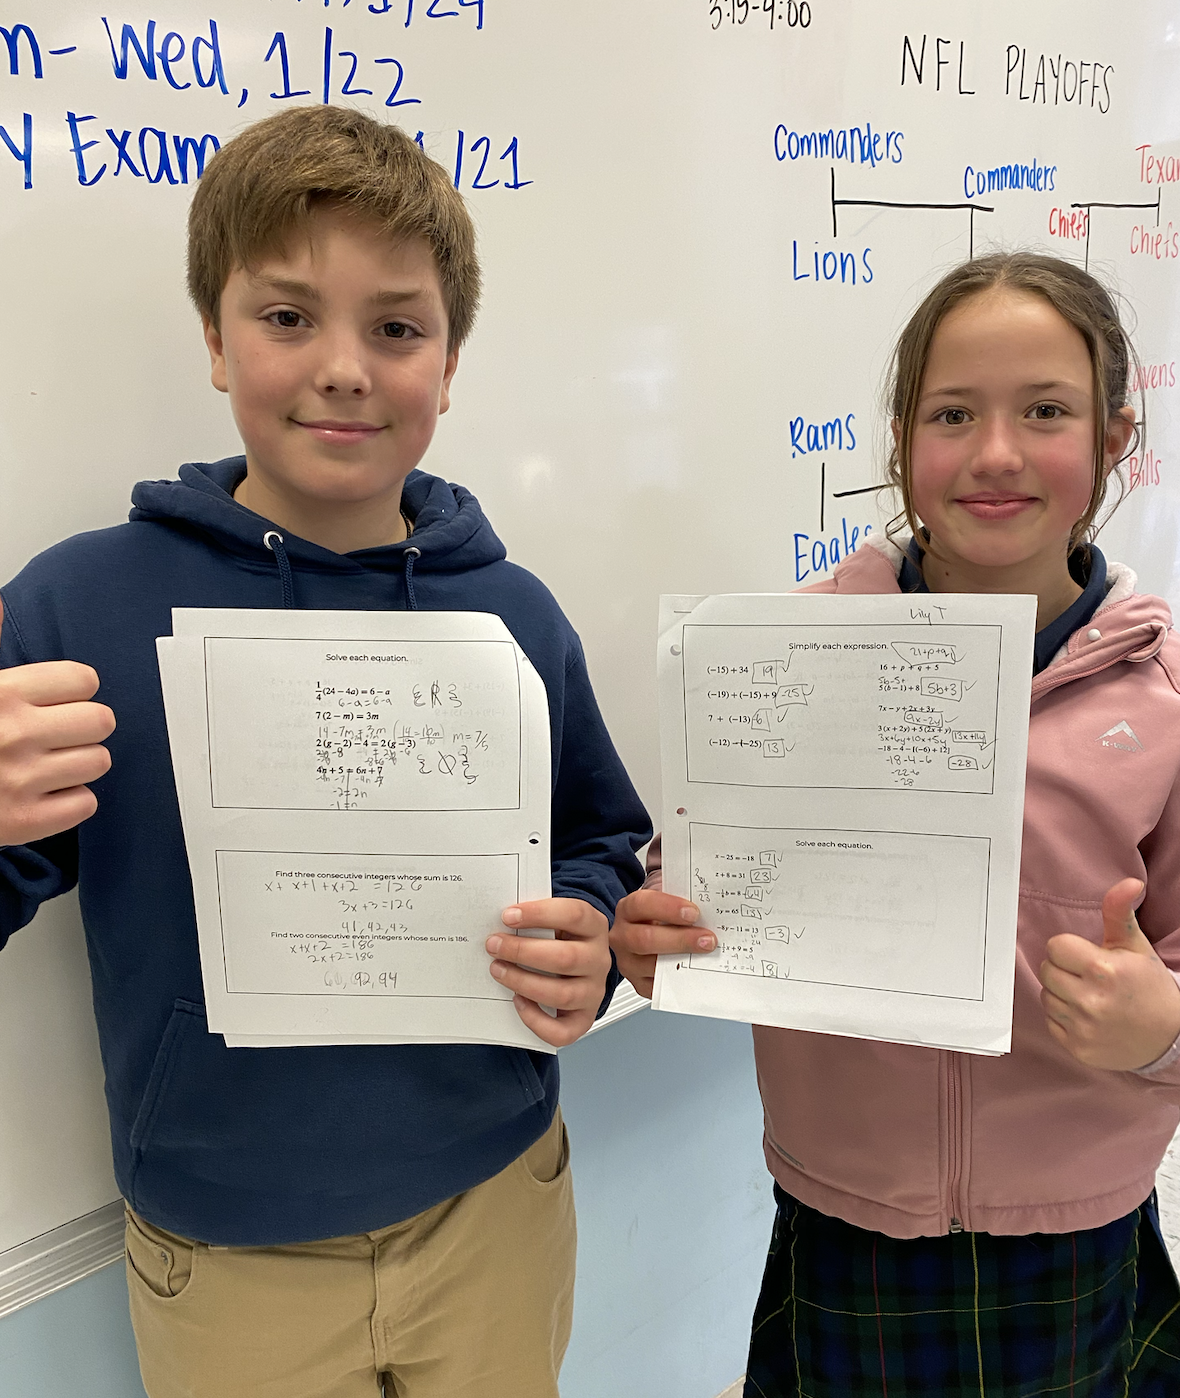 1/24
n- Wed, 1/22
Y Exam 1/21
3:15-4:00
NFL PLAYOFFS
Commanders
Commanders
Lions
Texan
Chiefs
Chiefs
Rams
Eagles
avens
Bills
Solve each equation.
1/4(24 – 4a) = 6 – a
6-a = 6-a
{ℝ}
7(2 – m) = 3m
m = 7/5
2(g – 2) – 4 = 2(g – 3)
{∅}
4n + 5 = 6n + 7
-2 = 2n
-1 = n
Find three consecutive integers whose sum is 126.
x+ x+1 + x+2 = 126
3x+3 = 126
41, 42, 43
Find two consecutive even integers whose sum is 186.
x+x+2 = 186
2x+2=186
92, 94
Lily T
Simplify each expression.
(–15) + 34 19
(–19) + (–15) + 9 -25
7 + (–13) -6
(–12) – (–25) 13
21+p+q
16 + p + q + 5
5b-5+
5(b – 1) + 8 5b+3
7x – y + 2x + 3y
9x-2y
3(x + 2y) + 5(2x + y)
3x+6y+10x+5y 13x+11y
–18 – 4 – [(–6) + 12]
-18-4-6 -28
-22-6
-28
K-Way
Solve each equation.
x – 25 = –18 7
z + 8 = 31 23
5y = 65 13
–8y – 11 = 13 -3
–1/2x + 9 = 5
-9 -9
-1/2x = -4 8